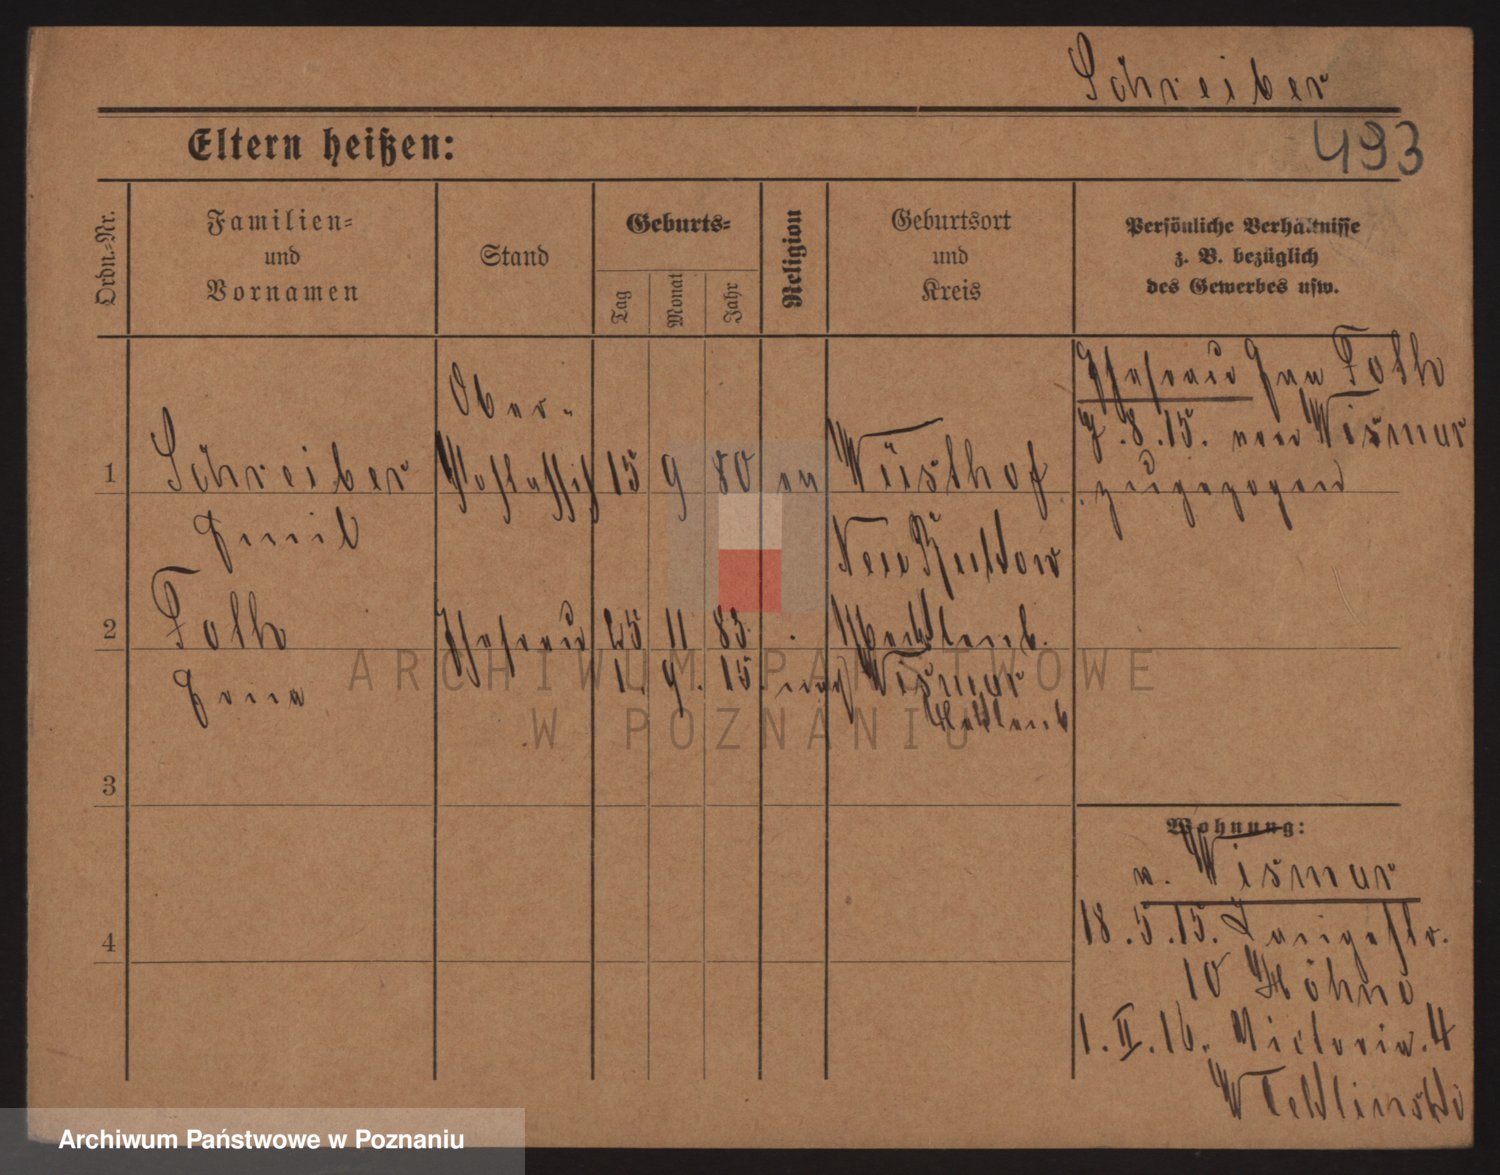 Schreiber
493
Eltern heißen:
Ordn.-Nr.
Familien-
und
Vornamen
Stand
Geburts-
Tag
Monat
Jahr
Religion
Geburtsort
und
Kreis
Persönliche Verhältnisse
z. B. bezüglich
des Gewerbes usw.
1
Schreiber
Emil
Ober-
15 9 80 ev
Wüsthof
Neu
2
Toth
Ehefrau
25 11 83.
Mecklenb.
1. 9. 15 nach Wismar
Mecklenb
3
4
Ehefrau Toth
8. 15. von Wismar
zugezogen
Wohnung:
v. Wismar
18. 5. 15. Langestr.
10 Höhne
1. II. 16. Victoria. 4
ARCHIWUM PAŃSTWOWE
W POZNANIU
Archiwum Państwowe w Poznaniu